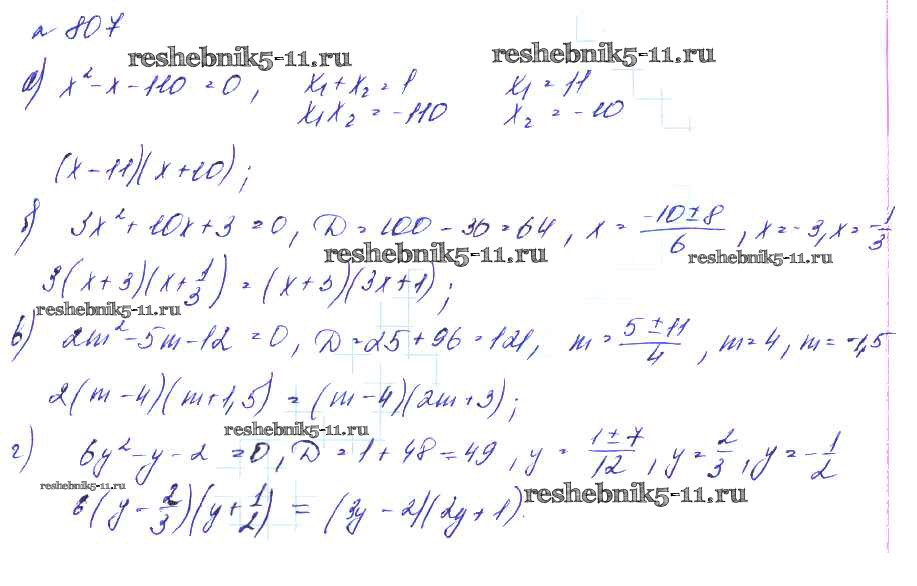 № 807
reshebnik5-11.ru reshebnik5-11.ru
а) x² - x - 110 = 0, x₁ + x₂ = 1 x₁ = 11
x₁x₂ = -110 x₂ = -10
(x - 11)(x + 10);
б) 3x² + 10x + 3 = 0, D = 100 - 36 = 64, x = (-10 ± 8)/6, x = -3, x = -1/3
reshebnik5-11.ru reshebnik5-11.ru
3(x + 3)(x + 1/3) = (x + 3)(3x + 1);
reshebnik5-11.ru
в) 2m² - 5m - 12 = 0, D = 25 + 96 = 121, m = (5 ± 11)/4, m = 4, m = -1,5
2(m - 4)(m + 1,5) = (m - 4)(2m + 3);
reshebnik5-11.ru
г) 6y² - y - 2 = 0, D = 1 + 48 = 49, y = (1 ± 7)/12, y = 2/3, y = -1/2
reshebnik5-11.ru reshebnik5-11.ru
6(y - 2/3)(y + 1/2) = (3y - 2)(2y + 1).